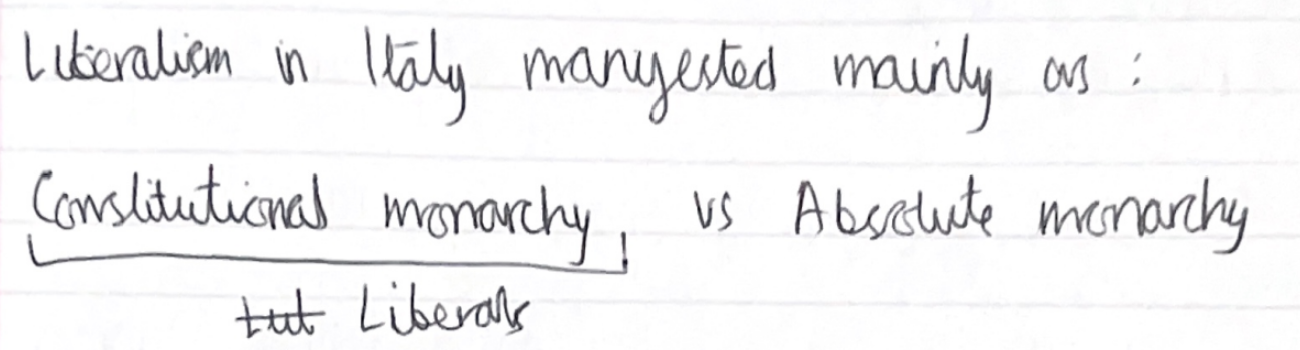 Liberalism in Italy manifested mainly as :
Constitutional monarchy vs Absolute monarchy
Liberals